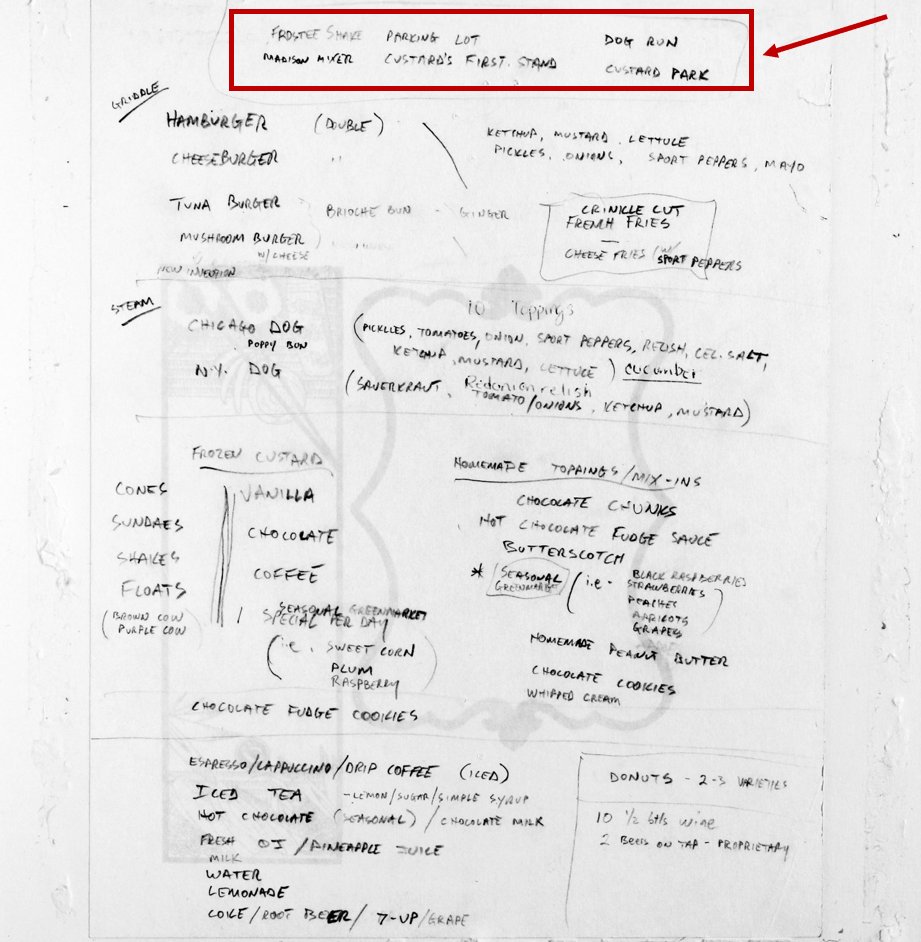 FROSTEE SHAKE PARKING LOT DOG RUN
MADISON MIXER CUSTARD'S FIRST STAND CUSTARD PARK
GRIDDLE
HAMBURGER (DOUBLE)
CHEESEBURGER "
KETCHUP, MUSTARD, LETTUCE
PICKLES, ONIONS, SPORT PEPPERS, MAYO
TUNA BURGER BRIOCHE BUN - GINGER
MUSHROOM BURGER
W/CHEESE
NEW INVENTION
CRINKLE CUT
FRENCH FRIES
CHEESE FRIES (W/ SPORT PEPPERS
STEAM
10 Toppings
CHICAGO DOG (PICKLLES, TOMATOES, ONION, SPORT PEPPERS, RELISH, CEL. SALT,
POPPY BUN KETCHUP, MUSTARD, LETTUCE) CUCUMBER
N.Y. DOG (SAUERKRAUT, relish
TOMATO/ONIONS, KETCHUP, MUSTARD)
FROZEN CUSTARD
CONES
SUNDAES
SHAKES
FLOATS
(BROWN COW
PURPLE COW)
VANILLA
CHOCOLATE
COFFEE
SEASONAL GREENMARKET
SPECIAL PER DAY
(i.e. SWEET CORN
PLUM
RASPBERRY)
CHOCOLATE FUDGE COOKIES
HOMEMADE TOPPINGS/MIX-INS
CHOCOLATE CHUNKS
HOT CHOCOLATE FUDGE SAUCE
BUTTERSCOTCH
* SEASONAL
GREENMARKET
(i.e - BLACK RASPBERRIES
STRAWBERRIES
PEACHES
APRICOTS
GRAPES)
HOMEMADE PEANUT BUTTER
CHOCOLATE COOKIES
WHIPPED CREAM
ESPRESSO/CAPPUCCINO/DRIP COFFEE (ICED)
ICED TEA - LEMON/SUGAR/SIMPLE SYRUP
HOT CHOCOLATE (SEASONAL) / CHOCOLATE MILK
FRESH OJ /PINEAPPLE JUICE
MILK
WATER
LEMONADE
COKE/ROOT BEER/ 7-UP/GRAPE
DONUTS - 2-3 VARIETIES
10 1/2 btls wine
2 BEERS ON TAP - PROPRIETARY